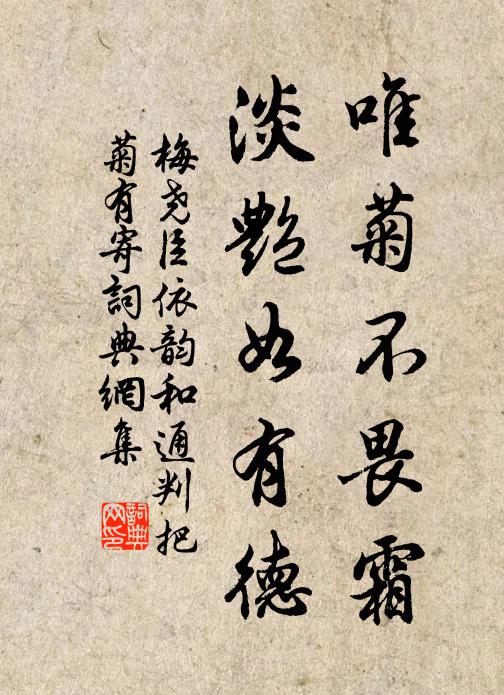 唯菊不畏霜
淡艷如有德
梅堯臣依韵和通判把
菊有寄詞典網集
詞典
网印